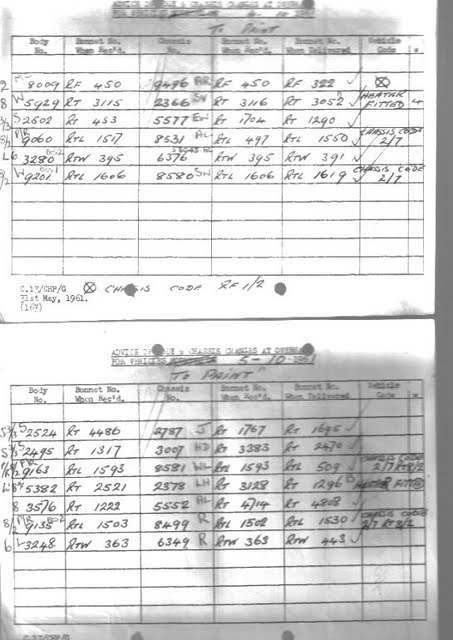 ADVICE OF BODY & CHASSIS CHANGES AT OVERHAUL
FOR VEHICLES
TO PAINT
Body No. Bonnet No. When Rec'd. Chassis No. Bonnet No. When Rec'd. Bonnet No. When Delivered Vehicle Code *
8009 RF 450 9496 AR RF 450 RF 322 ✓ ⊗
8 W 5929 RT 3115 2366 SW RT 3116 RT 3052 ✓ HEATER FITTED 4
3/3 S 2502 RT 453 5577 EW RT 1704 RT 1290 ✓
8/2 9060 RTL 1517 8531 AL RTL 497 RTL 1550 ✓ CHASSIS CODE 2/7
L6 3280 RTW 395 6376 RTW 395 RTW 391 ✓
8/2 W 9201 RTL 1606 8580 SW RTL 1606 RTL 1619 ✓ CHASSIS CODE 2/7
C.17/CHP/G ⊗ CHASSIS CODE RF1/2
31st May, 1961.
ADVICE OF BODY & CHASSIS CHANGES AT OVERHAUL
FOR VEHICLES 5-10-1961
"TO PAINT"
Body No. Bonnet No. When Rec'd. Chassis No. Bonnet No. When Rec'd. Bonnet No. When Delivered Vehicle Code *
3/3 S 2524 RT 4486 2787 J RT 1767 RT 1695 ✓
S 2495 RT 1317 3007 HD RT 3383 RT 2470 ✓
9163 RTL 1593 8581 WL RTL 1593 RTL 509 ✓ CHASSIS CODE 2/7 RT8/2
5382 RT 2521 2378 LH RT 3128 RT 1296 HEATER FITTED
8 3576 RT 1222 5552 AL RT 4714 RT 4808 ✓
8/2 9138 RTL 1503 8499 R RTL 1502 RTL 1530 ✓ CHASSIS CODE 2/7 RT 8/2
6 L 3248 RTW 363 6349 R RTW 363 RTW 443 ✓
C.17/CHP/G